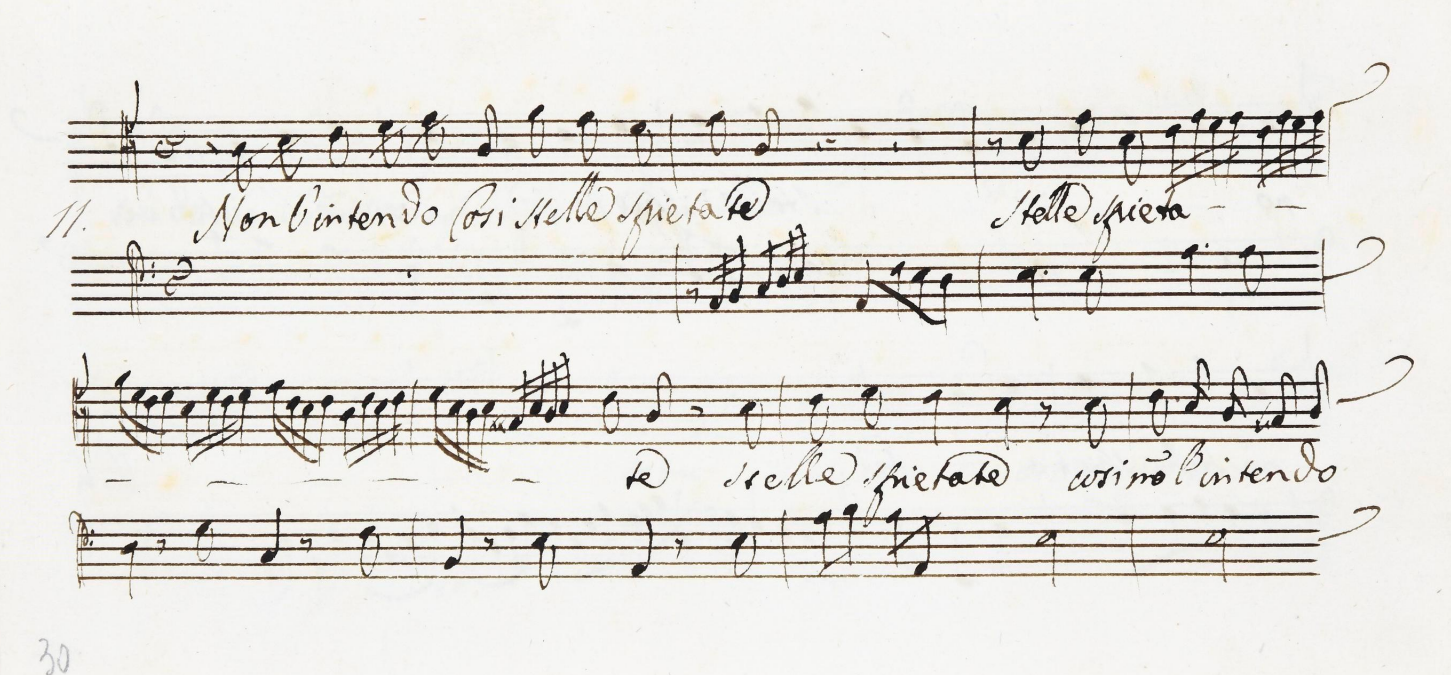 11.
Non l'intendo Cosi stelle spietate stelle spieta
te stelle spietate cosi nõ l'intendo
30